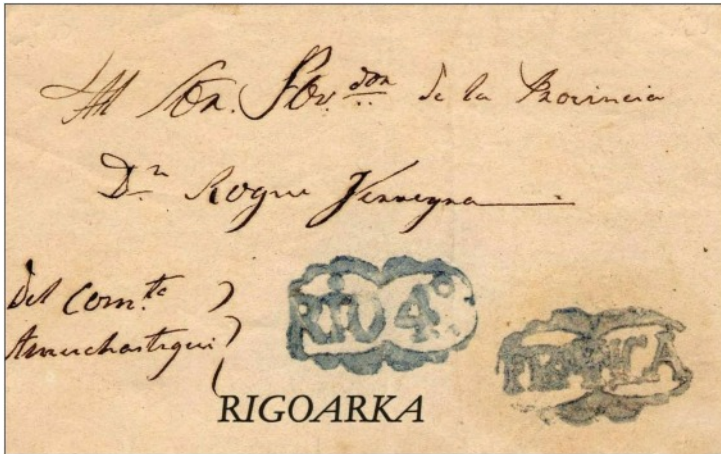 Al Sor. Gov.dor de la Provincia
Dn. Roque Ferreyra
del Com.te
Amuchastegui
RIO 4º
FRANCA
RIGOARKA